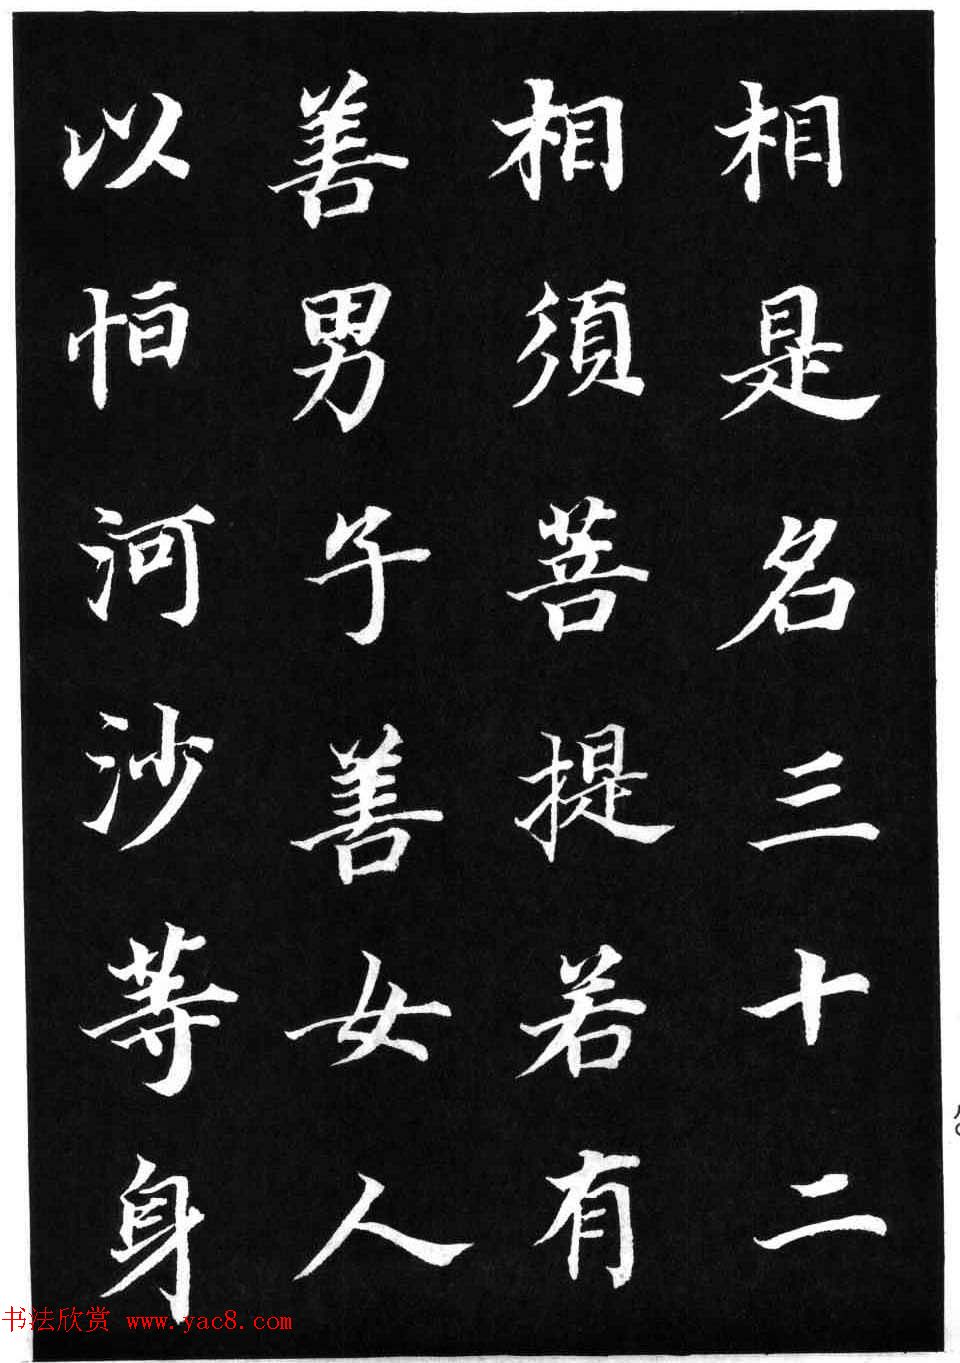 相是名三十二
相須菩提若有
善男子善女人
以恒河沙等身
书法欣赏 www.yac8.com